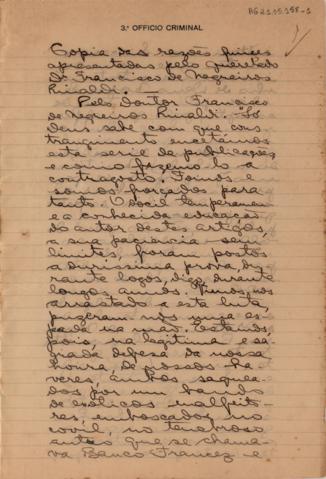 BG 21.11.158-1
3.º OFFICIO CRIMINAL
Copia das razões finaes
apresentadas pelo Querellado
Dr. Francisco de Negreiros
Rinaldi. —
Pelo Doutor Francisco
de Negreiros Rinaldi. "Só
Deus sabe com que cons
trangimento encetámos
esta serie de publicações
e como fazemol-o a
contragosto. Fomos e
somos forçados para
tanto. O docil temperamen
e a conhecida educação
do autor destes artigos,
a sua paciencia sem
limites, foram postos
a durissima prova, du
rante logos, digo, durante
longos annos. Tendo-nos
arrastado a esta luta,
puzeram-nos uma es
pada na mão. Estamos,
pois, na legitima e sa
grada defesa da nossa
honra, de nossos ha
veres, ambos saquea
dos por um bando
de exoticos malfeito
res, emboscados no
covil, no tenebroso
antro que se chama
va Banco Francez e